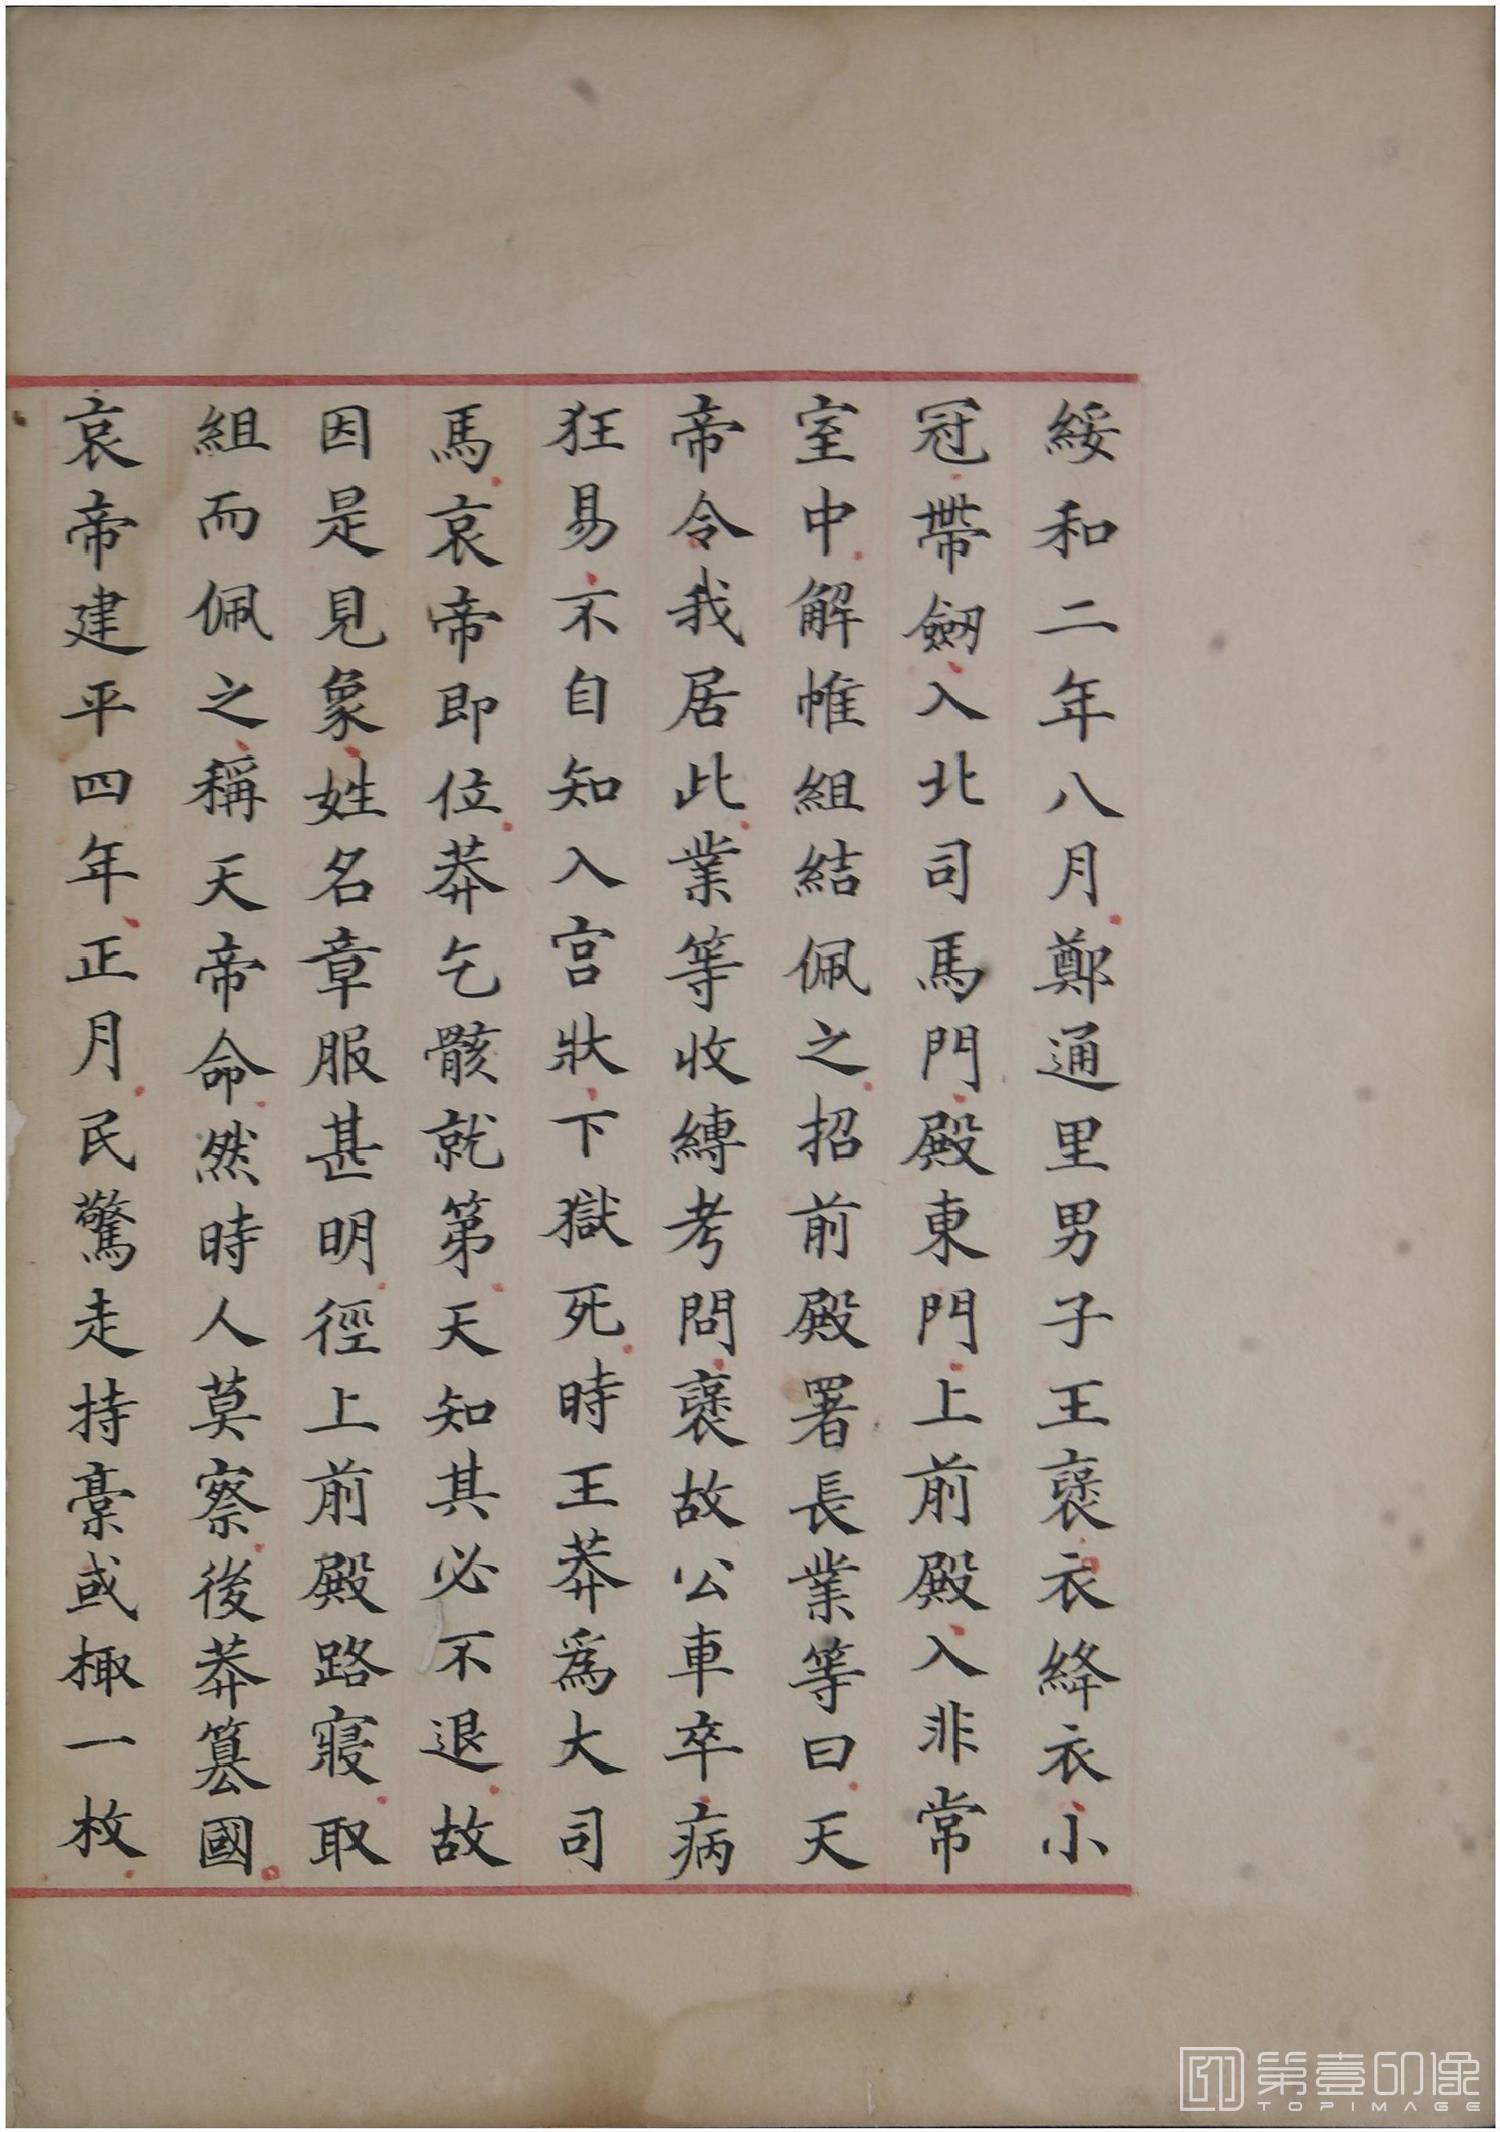 綏和二年八月鄭通里男子王褒衣絳衣小
冠帶劒入北司馬門殿東門上前殿入非常
室中解帷組結佩之招前殿署長業等曰天
帝令我居此業等收縛考問褒故公車卒病
狂易不自知入宮狀下獄死時王莽爲大司
馬哀帝即位莽乞骸就第天知其必不退故
因是見象姓名章服甚明徑上前殿路寢取
組而佩之稱天帝命然時人莫察後莽篡國
哀帝建平四年正月民驚走持槀或棷一枚
第壹印像
TOPIMAGE